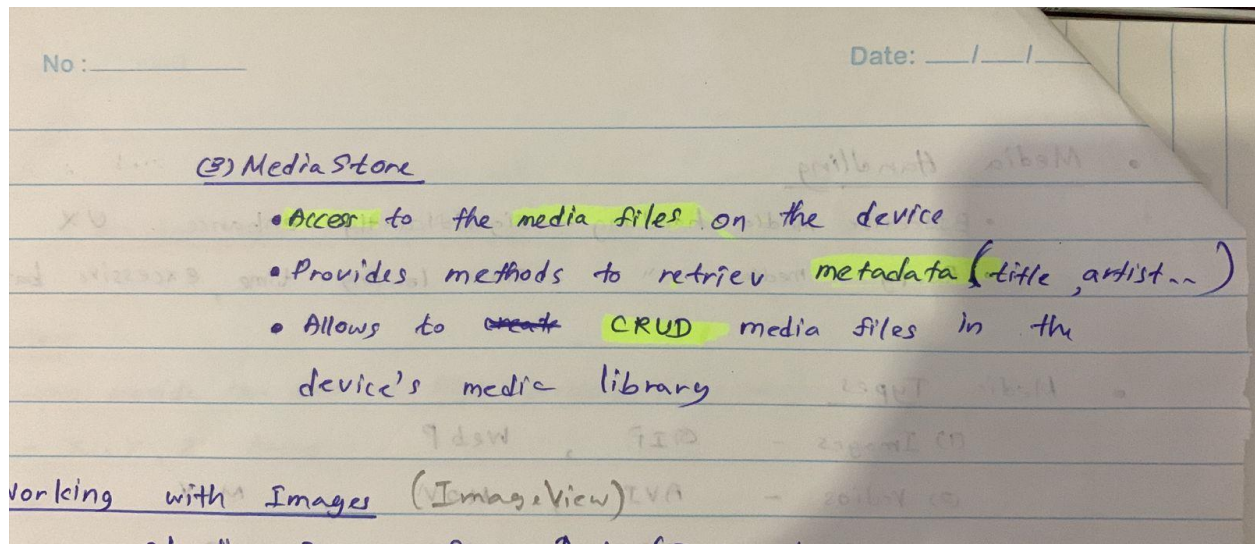 No :
Date: __/__/__
(3) MediaStore
• Access to the media files on the device
• Provides methods to retriev metadata (title, artist..)
• Allows to create CRUD media files in the
device's media library
Working with Images (ImageView)